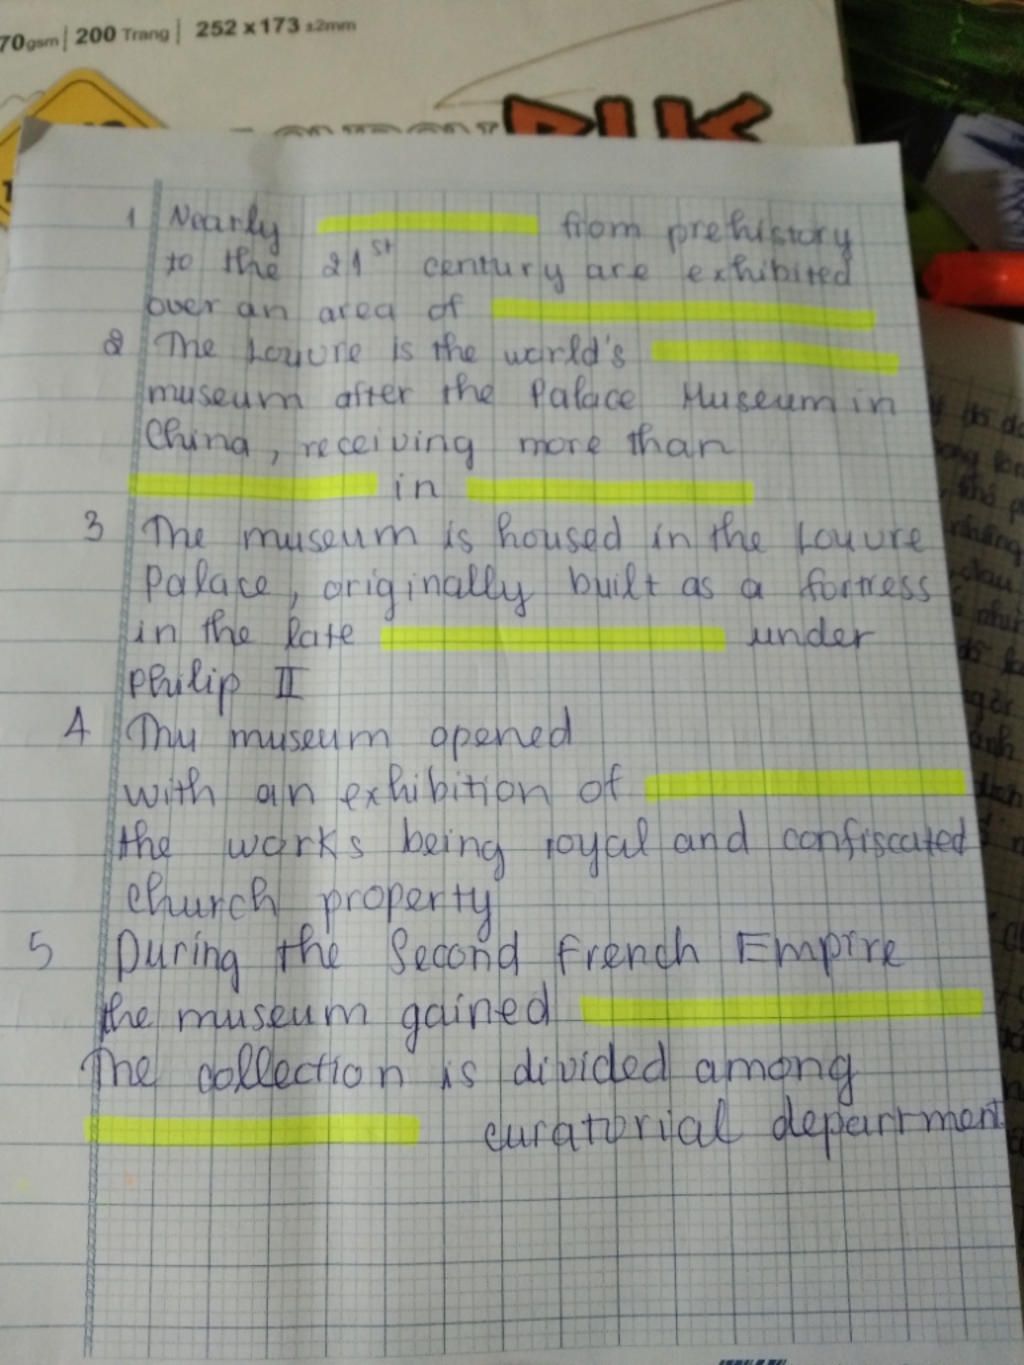 70gsm | 200 Trang | 252 x 173 ±2mm
1 Nearly from prehistory
to the 21st century are exhibited
over an area of
2 The Louvre is the world's
museum after the Palace Museum in
China, receiving more than
in
3 The museum is housed in the Louvre
Palace, originally built as a fortress
in the late under
Philip II
4 Thu museum opened
with an exhibition of
the works being royal and confiscated
church property
5 During the Second French Empire
the museum gained
The collection is divided among
curatorial department